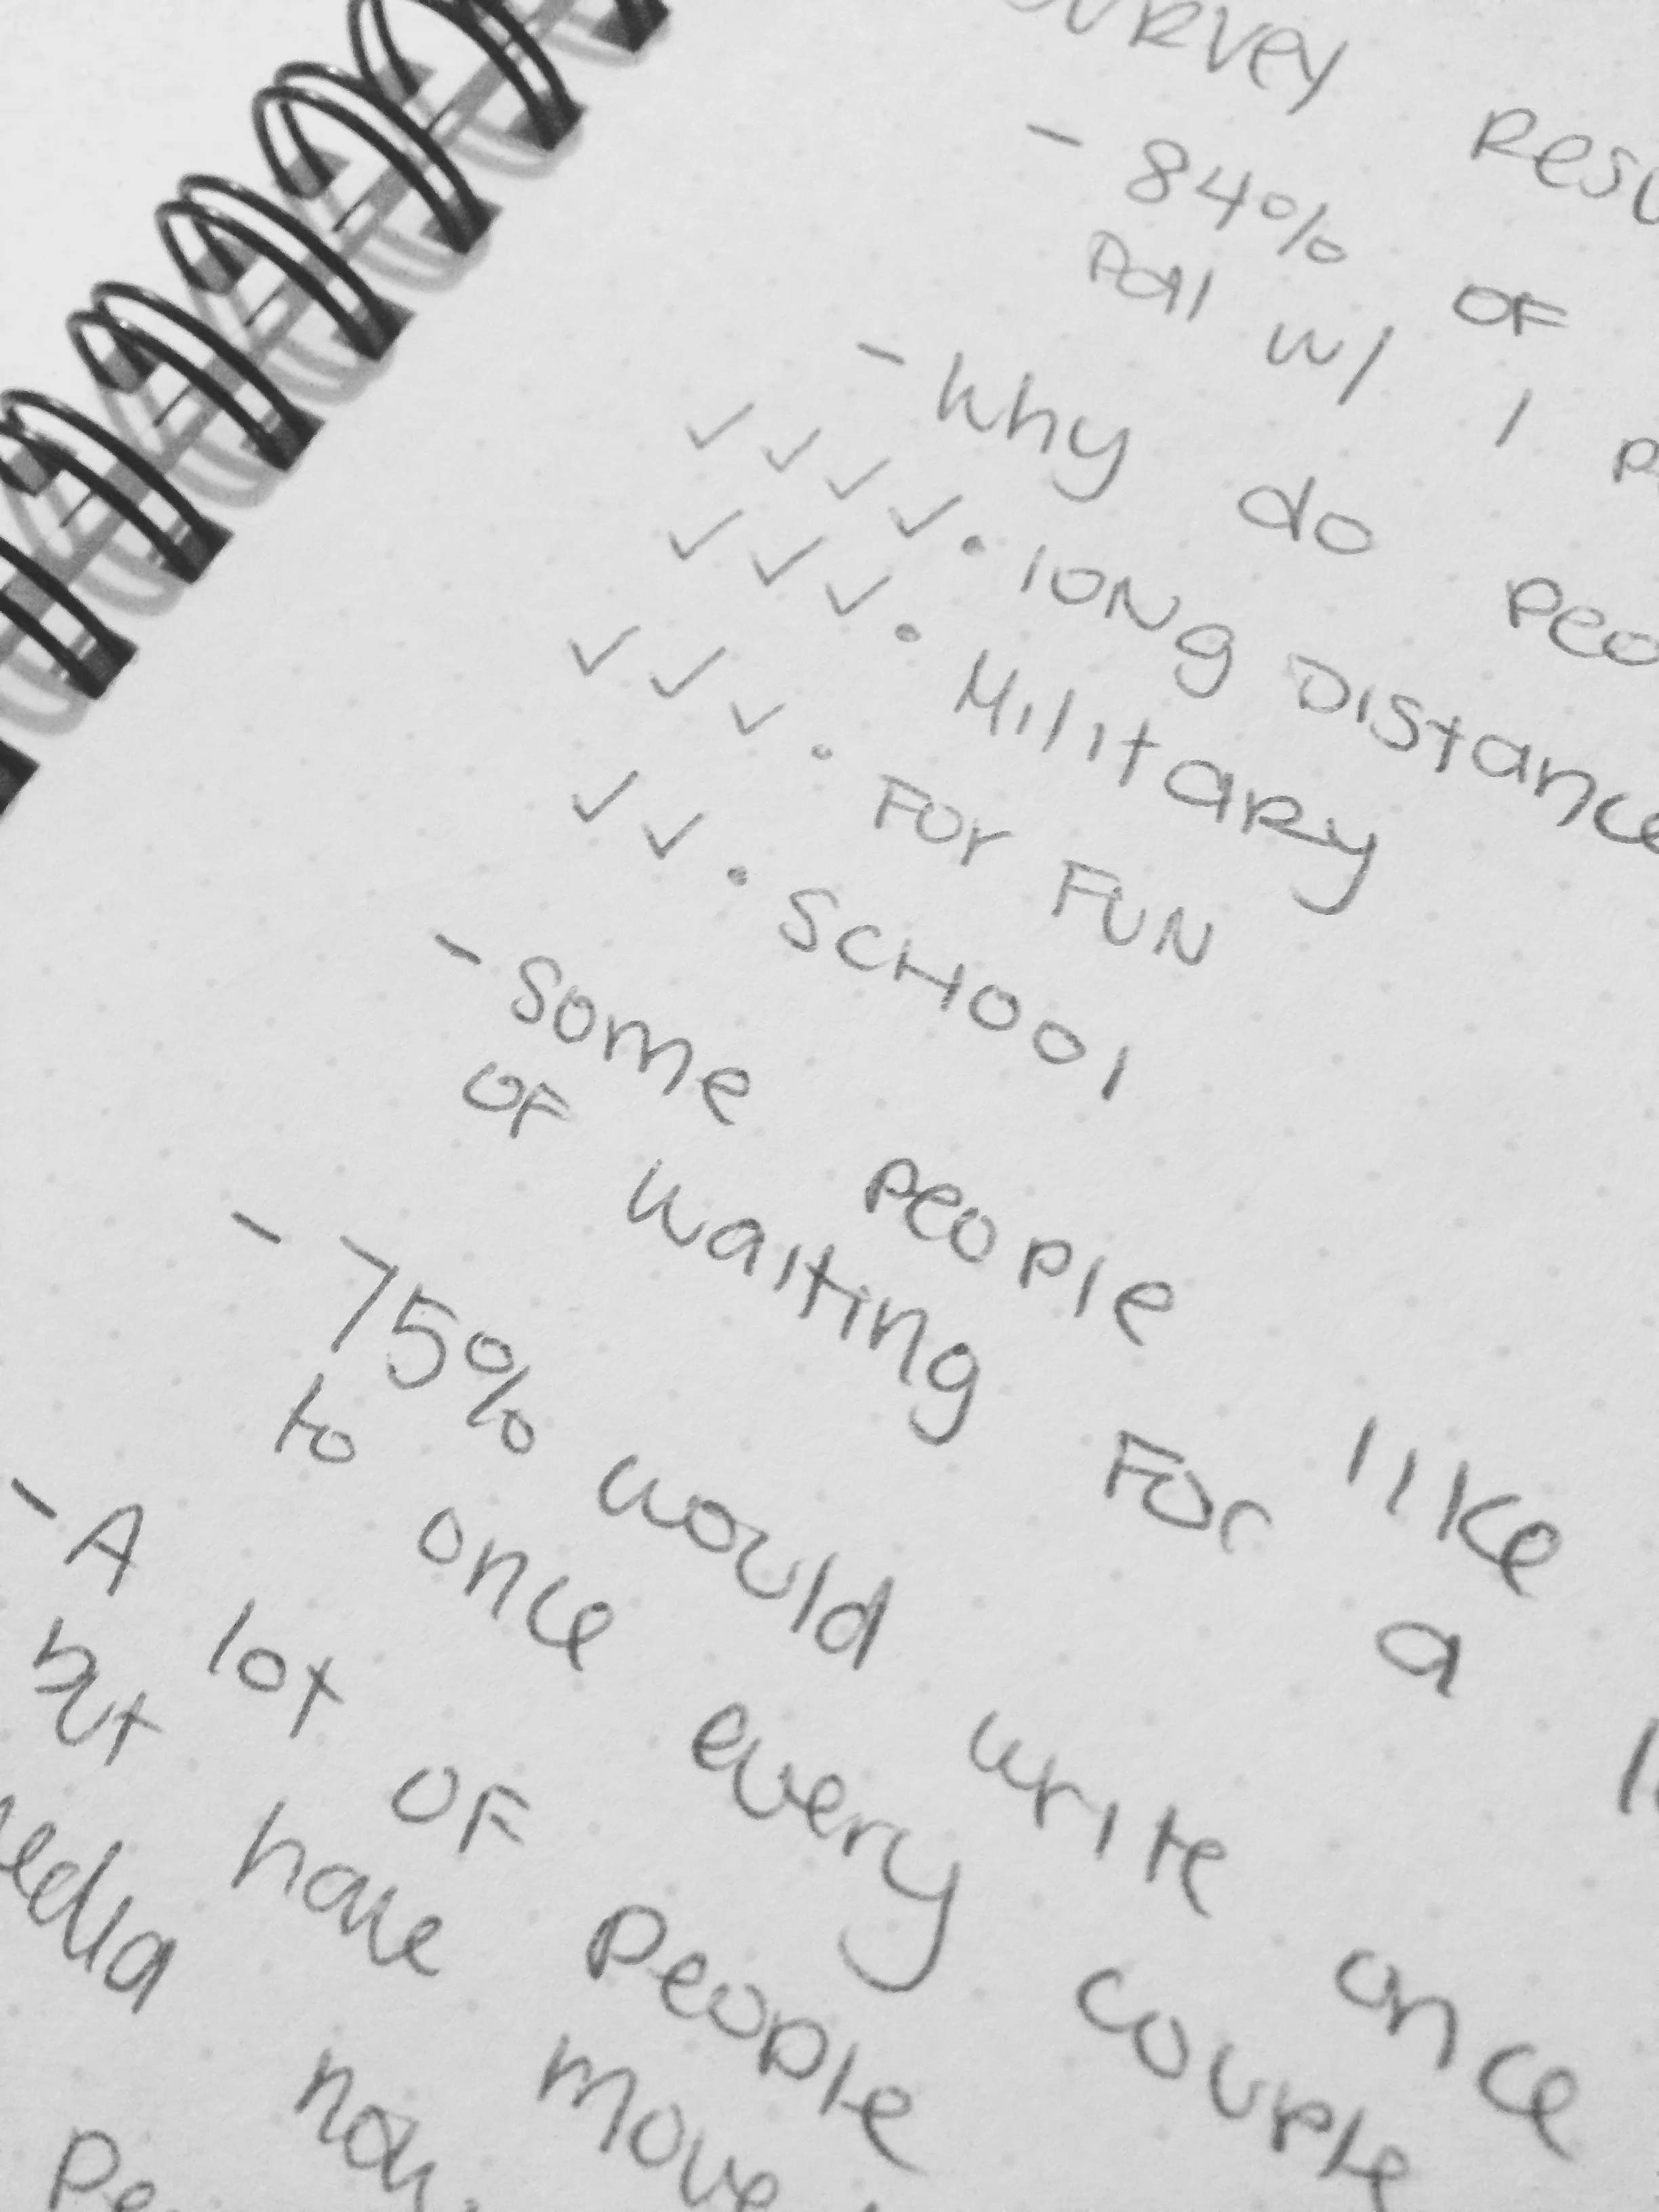 SURVEY RESU
- 84% OF
Pall w/ 1 P
- Why do Peo
✓ ✓ ✓ ✓ • long Distance
✓ ✓ ✓ • Military
✓ ✓ ✓ • For FUN
✓ ✓ • SCHOOl
- Some People like
OF waiting For a l
- 75% would write once
to once every couple
- A lot OF People
but have move
edia now.
Pe